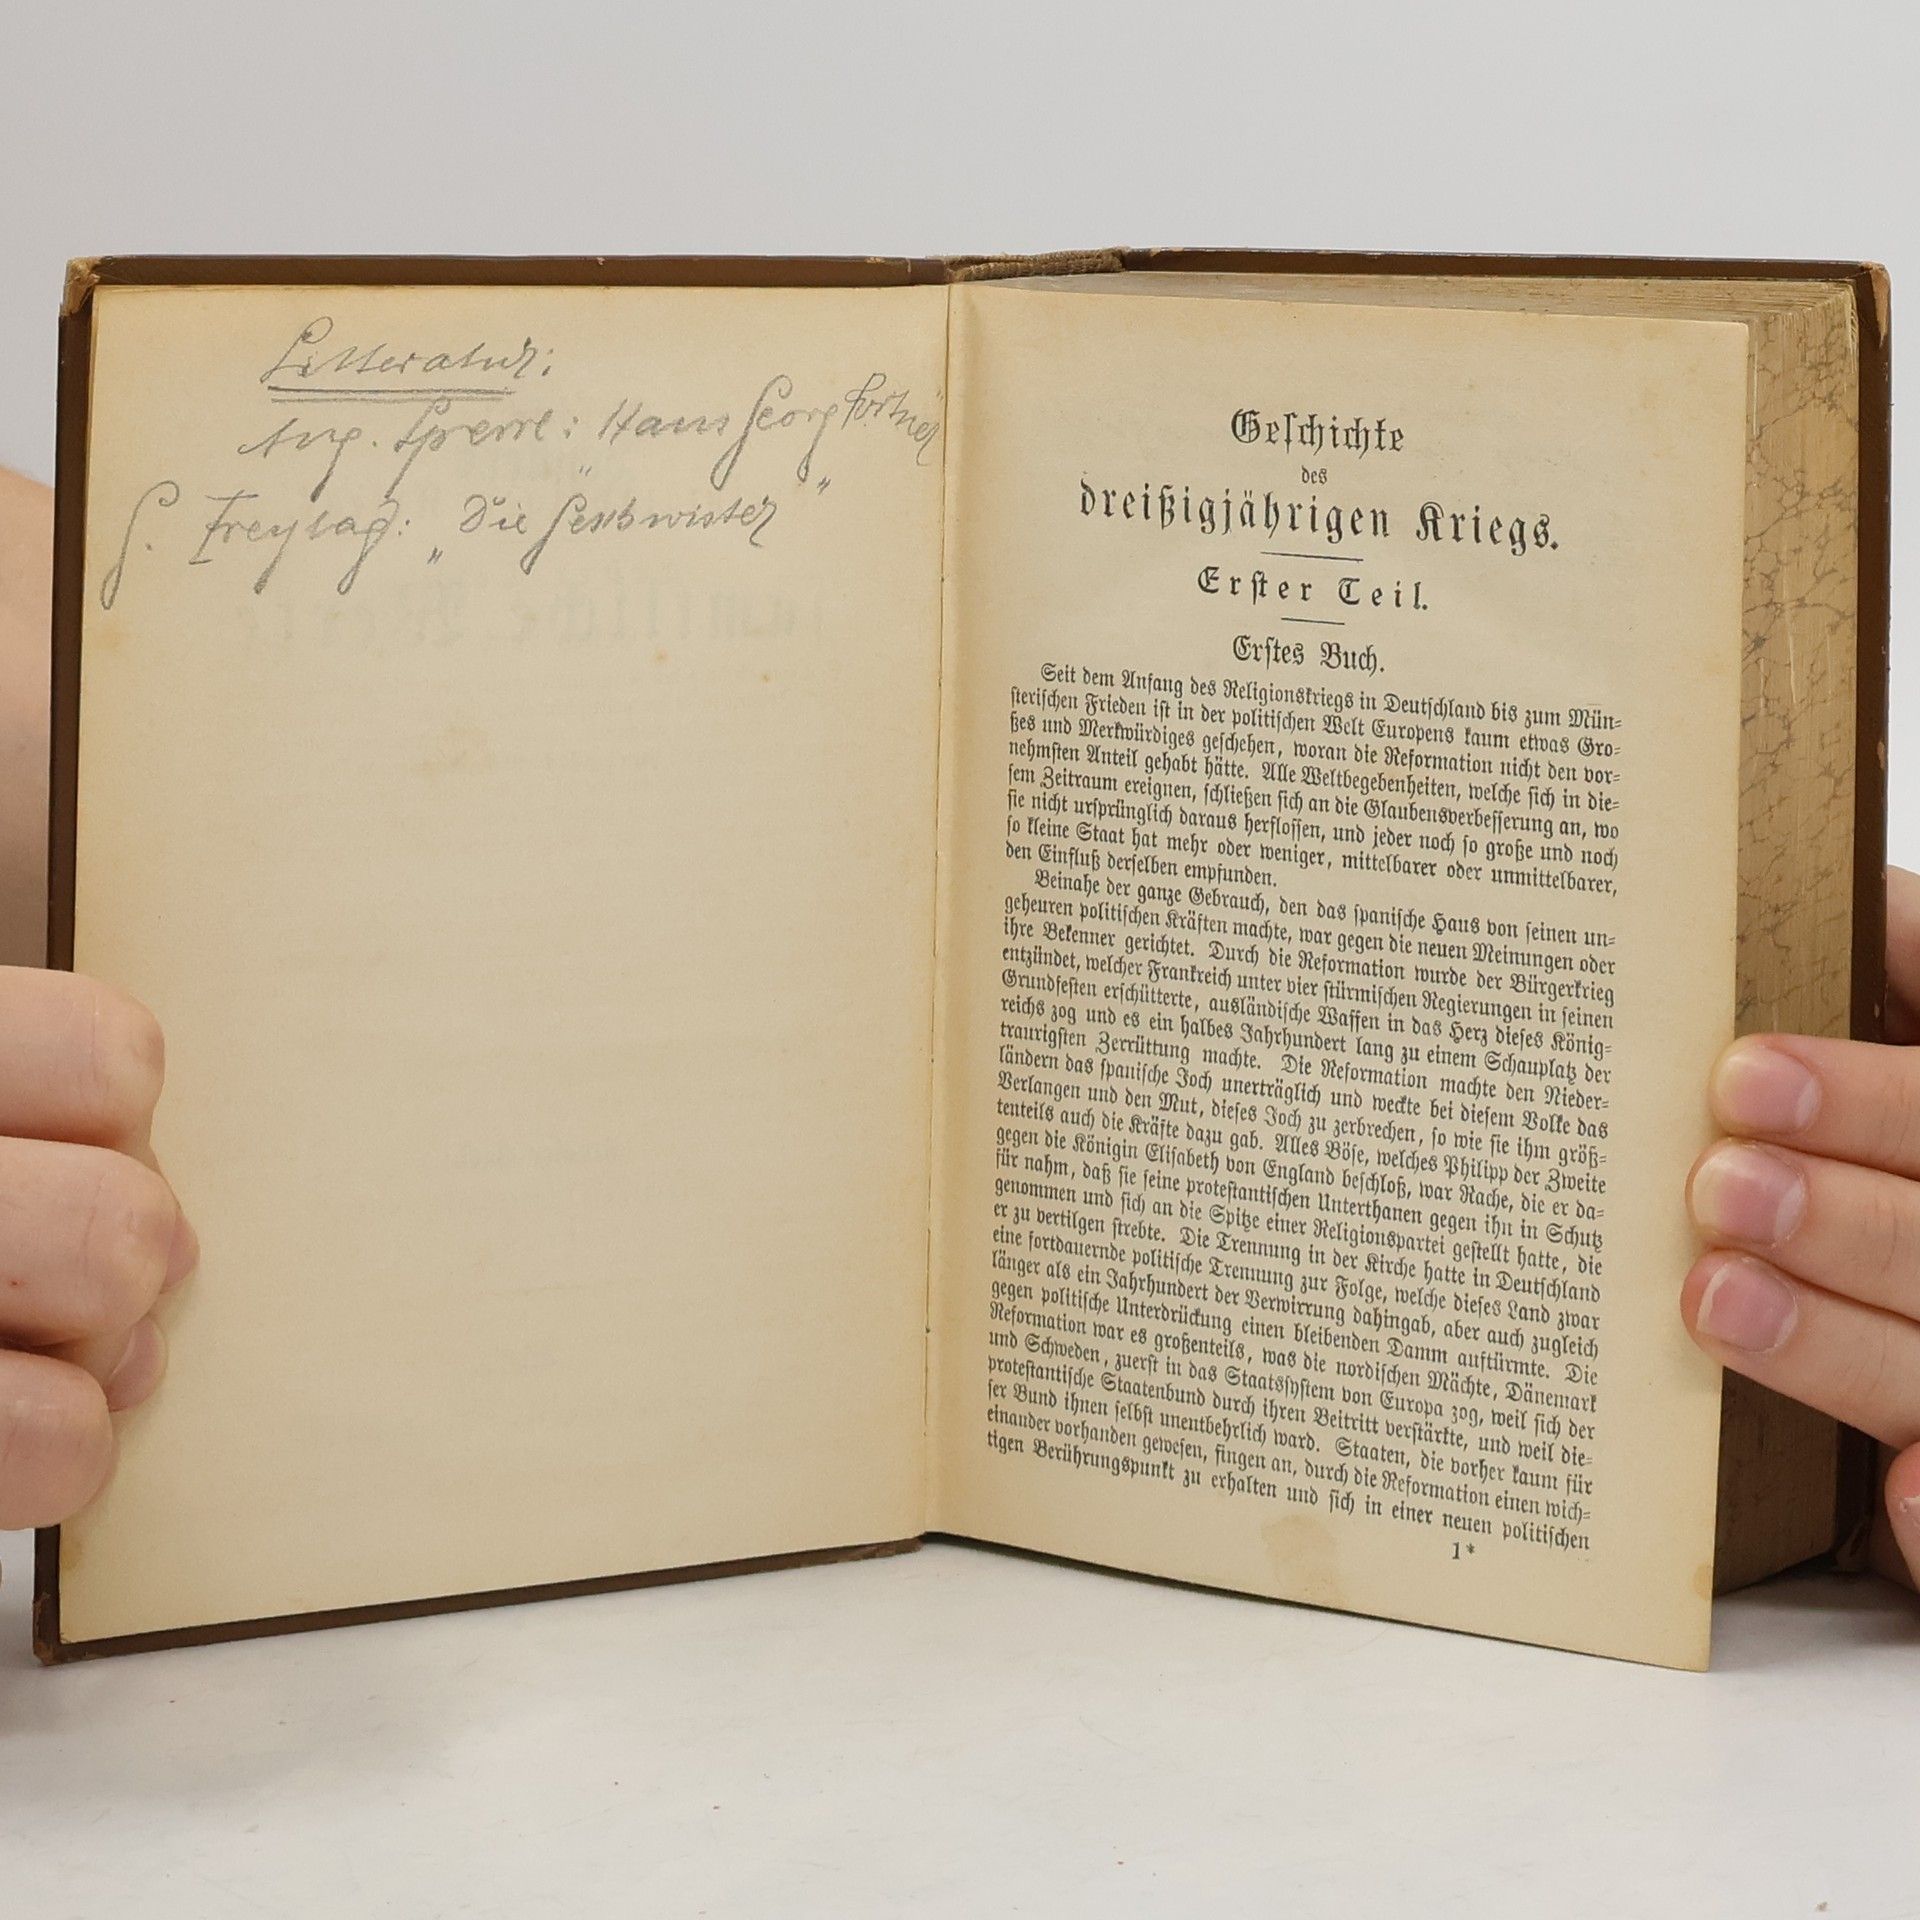 Litteratur:
Aug. Sperrl: Hans Georg Portner
"          "
G. Freytag: „Die Geschwister"
Geſchichte
des
dreißigjährigen Kriegs.
Erſter Teil.
Erſtes Buch.
Seit dem Anfang des Religionskriegs in Deutſchland bis zum Mün-
ſteriſchen Frieden iſt in der politiſchen Welt Europens kaum etwas Gro-
ßes und Merkwürdiges geſchehen, woran die Reformation nicht den vor-
nehmſten Anteil gehabt hätte. Alle Weltbegebenheiten, welche ſich in die-
ſem Zeitraum ereignen, ſchließen ſich an die Glaubensverbeſſerung an, wo
ſie nicht urſprünglich daraus herfloſſen, und jeder noch ſo große und noch
ſo kleine Staat hat mehr oder weniger, mittelbarer oder unmittelbarer,
den Einfluß derſelben empfunden.
Beinahe der ganze Gebrauch, den das ſpaniſche Haus von ſeinen un-
geheuren politiſchen Kräften machte, war gegen die neuen Meinungen oder
ihre Bekenner gerichtet. Durch die Reformation wurde der Bürgerkrieg
entzündet, welcher Frankreich unter vier ſtürmiſchen Regierungen in ſeinen
Grundfeſten erſchütterte, ausländiſche Waffen in das Herz dieſes König-
reichs zog und es ein halbes Jahrhundert lang zu einem Schauplatz der
traurigſten Zerrüttung machte. Die Reformation machte den Nieder-
ländern das ſpaniſche Joch unerträglich und weckte bei dieſem Volke das
Verlangen und den Mut, dieſes Joch zu zerbrechen, ſo wie ſie ihm größ-
tenteils auch die Kräfte dazu gab. Alles Böſe, welches Philipp der Zweite
gegen die Königin Eliſabeth von England beſchloß, war Rache, die er da-
für nahm, daß ſie ſeine proteſtantiſchen Unterthanen gegen ihn in Schutz
genommen und ſich an die Spitze einer Religionspartei geſtellt hatte, die
er zu vertilgen ſtrebte. Die Trennung in der Kirche hatte in Deutſchland
eine fortdauernde politiſche Trennung zur Folge, welche dieſes Land zwar
länger als ein Jahrhundert der Verwirrung dahingab, aber auch zugleich
gegen politiſche Unterdrückung einen bleibenden Damm auftürmte. Die
Reformation war es großenteils, was die nordiſchen Mächte, Dänemark
und Schweden, zuerſt in das Staatsſyſtem von Europa zog, weil ſich der
proteſtantiſche Staatenbund durch ihren Beitritt verſtärkte, und weil die-
ſer Bund ihnen ſelbſt unentbehrlich ward. Staaten, die vorher kaum für
einander vorhanden geweſen, fingen an, durch die Reformation einen wich-
tigen Berührungspunkt zu erhalten und ſich in einer neuen politiſchen
1*